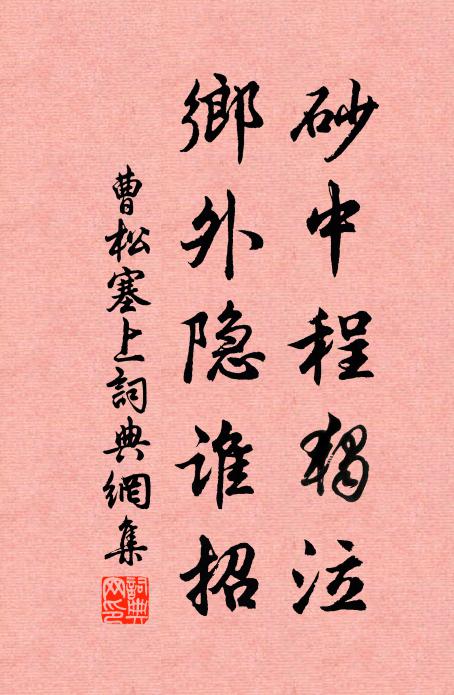 砂中程独泣
鄉外隐谁招
曹松塞上詞典網集
詞典网印